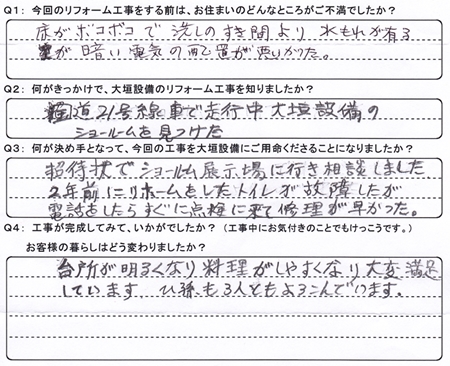 Q1: 今回のリフォーム工事をする前は、お住まいのどんなところがご不満でしたか？
床がボコボコで 流しのすき間より 水もれが有る
が 暗い 電気の配置が悪かった。
Q2: 何がきっかけで、大垣設備のリフォーム工事を知りましたか？
国道21号線車で走行中大垣設備の
ショールームを見つけた
Q3: 何が決め手となって、今回の工事を大垣設備にご用命くださることになりましたか？
招待状でショールーム展示場に行き相談しました
2年前にリホームをしたトイレが故障したが
電話をしたらすぐに点検に来て修理が早かった。
Q4: 工事が完成してみて、いかがでしたか？（工事中にお気付きのことでもけっこうです。）
お客様の暮らしはどう変わりましたか？
台所が明るくなり料理がしやすくなり大変満足
しています。ひ孫も3人ともよろこんでいます。